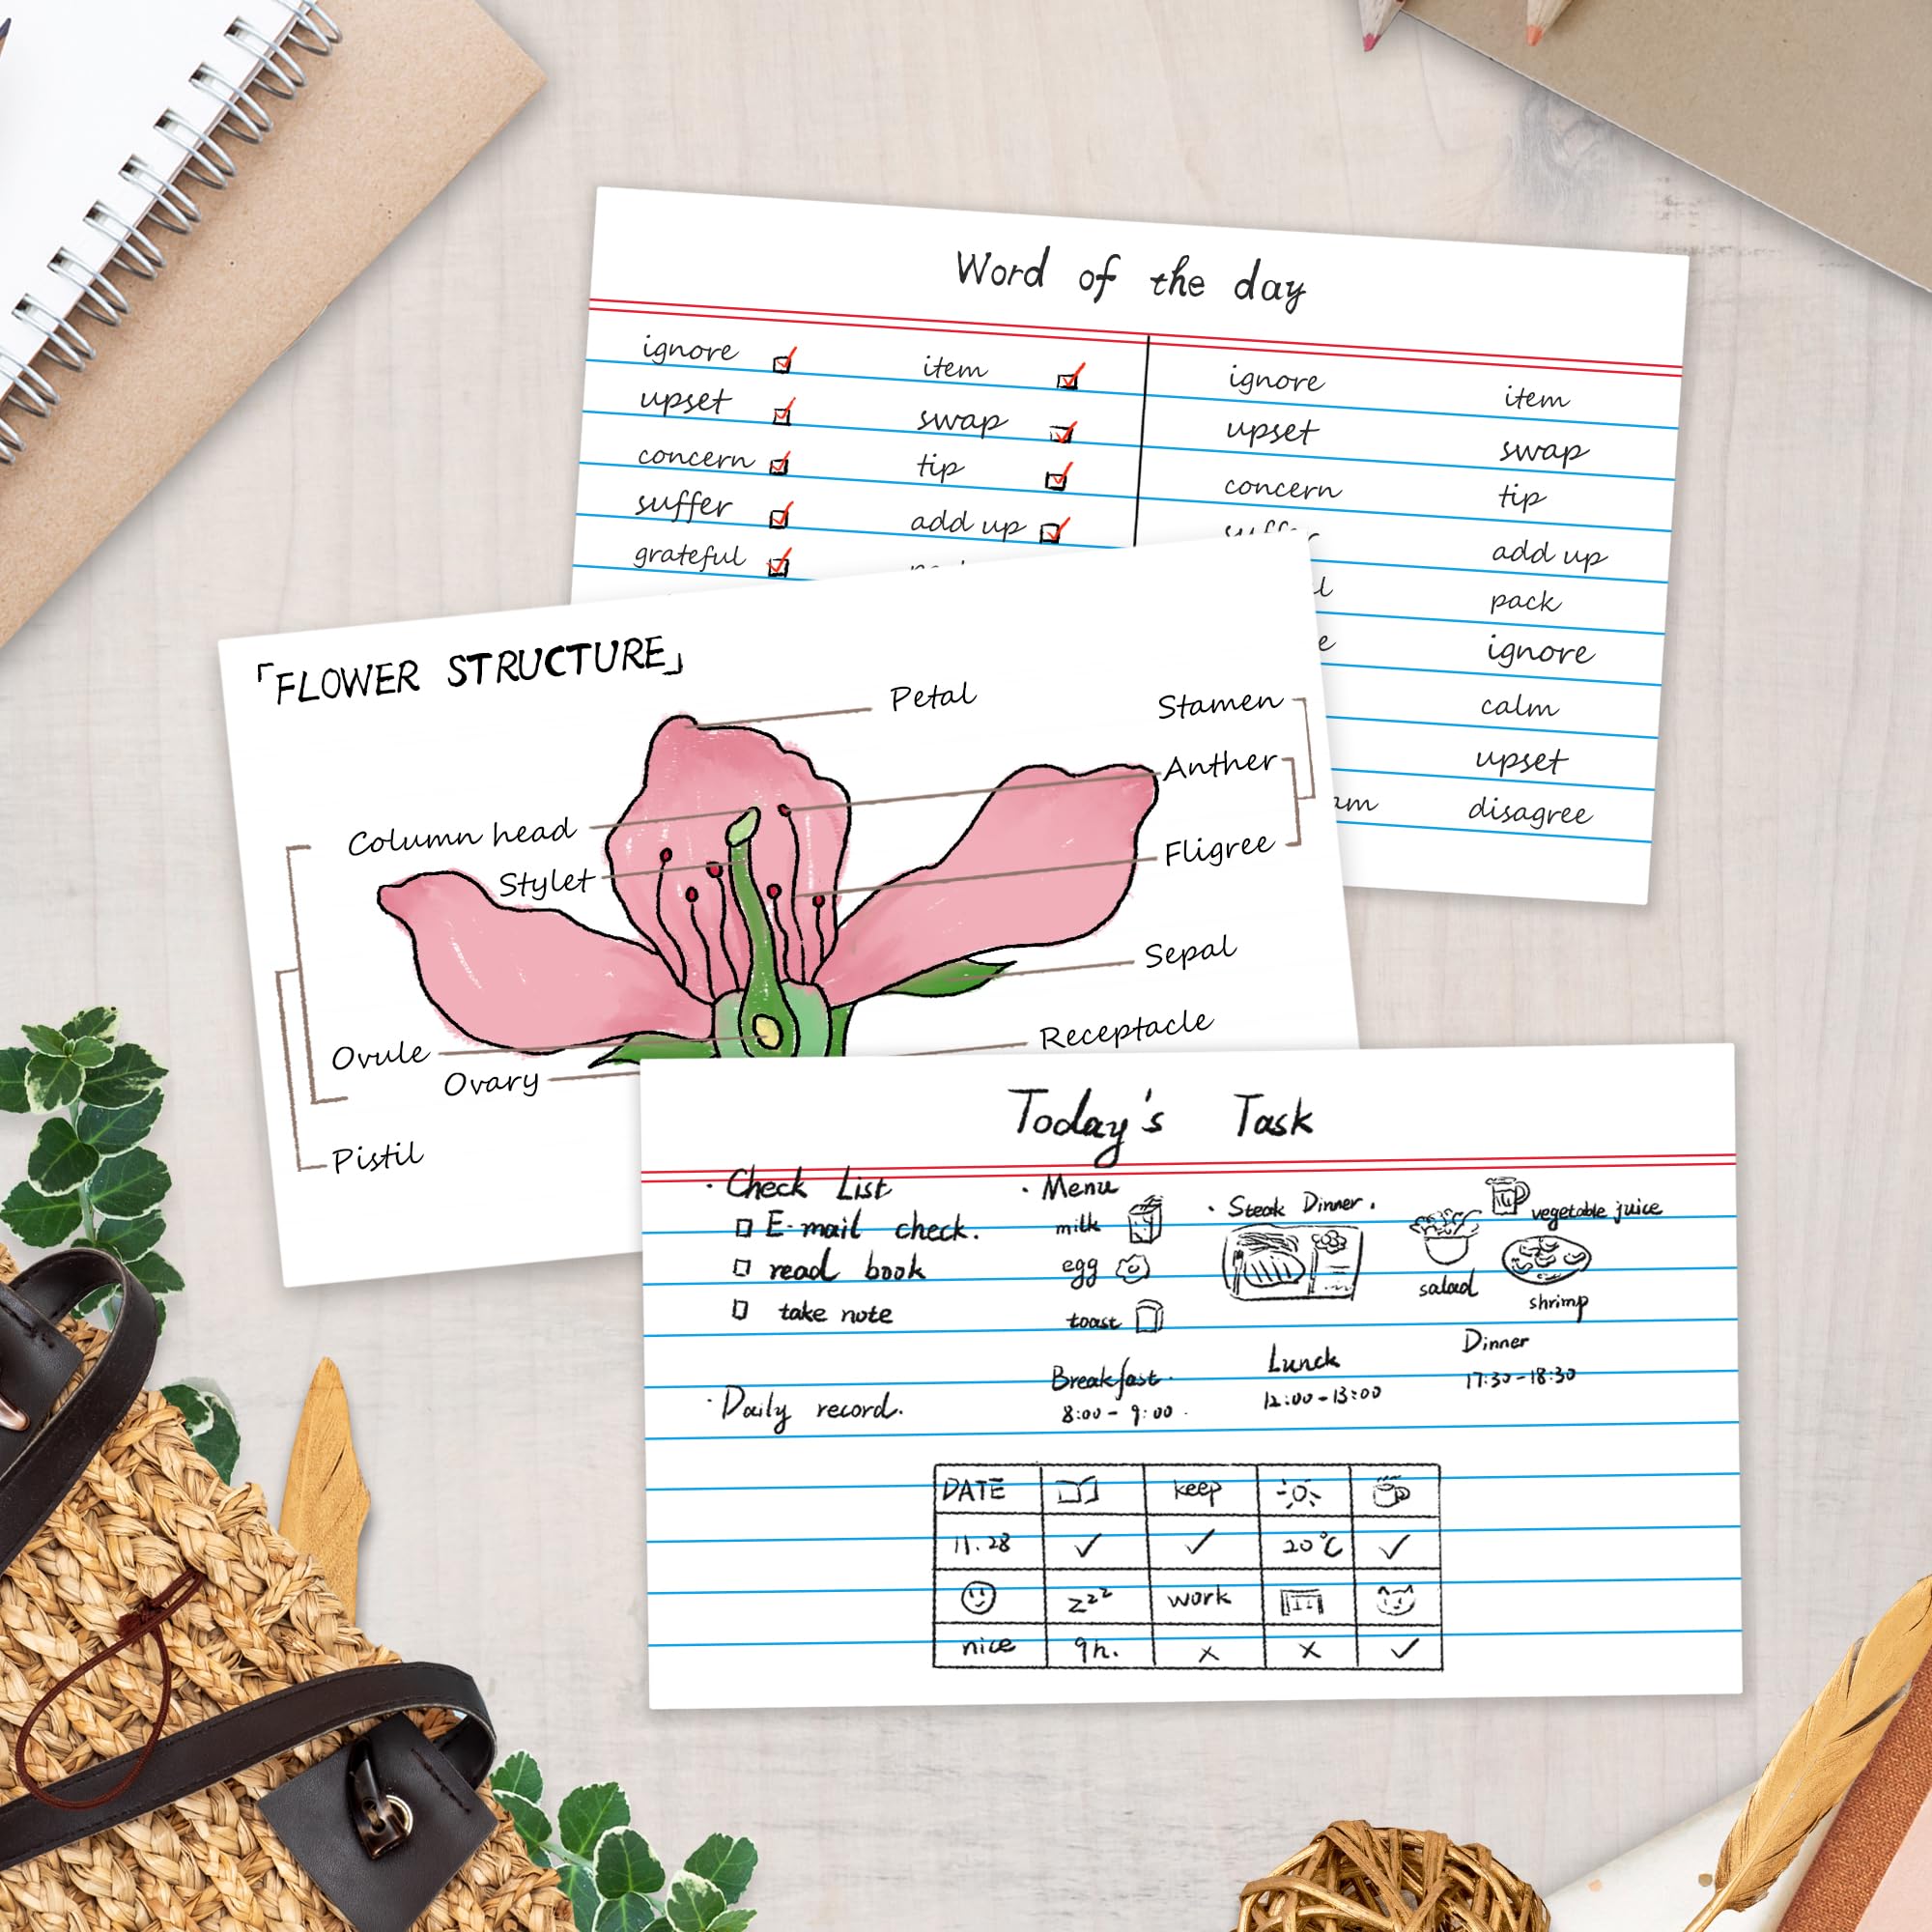 Word of the day
ignore item ignore item
upset swap upset swap
concern tip concern tip
suffer add up suffer add up
grateful pack
ignore
calm
upset
disagree
「FLOWER STRUCTURE」
Petal
Stamen
Anther
Column head
Fligree
Stylet
Sepal
Receptacle
Ovule
Ovary
Pistil
Today's Task
· Check List
E-mail check.
read book
take note
· Daily record.
· Menu
milk
egg
toast
Breakfast.
8:00 - 9:00.
· Steak Dinner.
Lunck
12:00-13:00
vegetable juice
salad
shrimp
Dinner
17:30-18:30
DATE keep
11.28 ✓ ✓ 20℃ ✓
zzz work
nice 9h. × × ✓